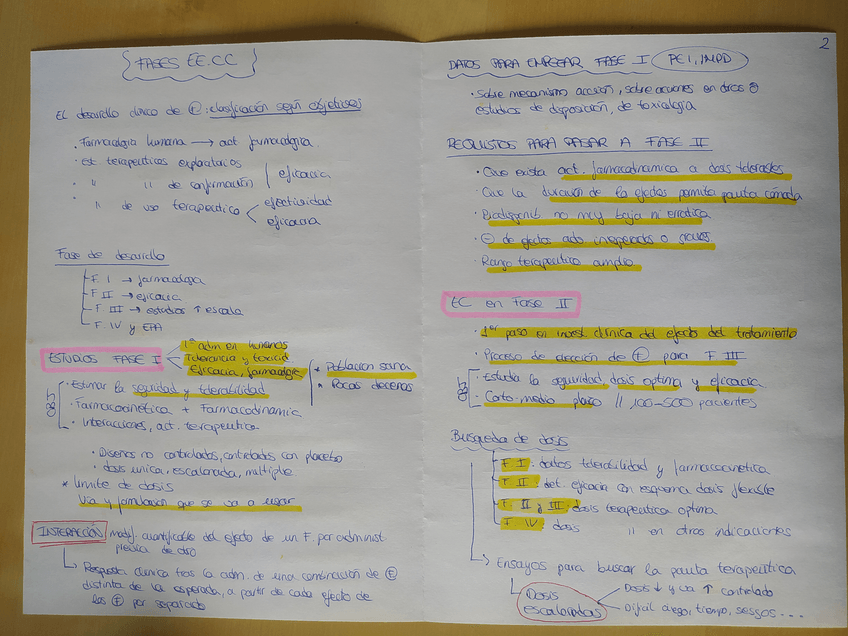 FASES EE.CC
El desarrollo clínico de Ⓕ: clasificación según objetivos
· Farmacología humana → act farmacológica.
· Est terapeuticos exploratorios
· " " de confirmación
eficacia
· " de uso terapeutico
efectividad
eficacia
Fase de desarrollo
F I → farmacologia
F II → eficacia
F III → estudios ↑ escala
F IV y EPA
ESTUDIOS FASE I
1ª adm en humanos
Tolerancia y toxicid
Eficacia, farmacolgia
* Población sana
* Pocas decenas
obj
· Estimar la seguridad y tolerabilidad
· Farmacocinética + Farmacodinamia
· Interacciones, act. terapeutica
· Diseños no controlados, controlados con placebo
· dosis unica, escalonada, multiple
* limite de dosis
Via y formulación que se va a usar
INTERACCIÓN modif. cuantificable del efecto de un F. por administ
previa de otro
Respuesta clinica tras la adm. de una combinación de Ⓕ
distinta de la esperada, a partir de cada efecto de
los Ⓕ por separado
2
DATOS PARA EMPEZAR FASE I PEI, IMPD
· Sobre mecanismo acción, sobre acciones en otros
estudios de disposición, de toxicología
REQUISITOS PARA PASAR A FASE II
· Que exista act. farmacodinamica a dosis tolerables
· Que la duración de la efectos permita pauta cómoda
· Biodisponib no muy baja ni erratica
· ⊖ de efectos adv inesperados o graves
· Rango terapeutico amplio
EC en Fase II
· 1er paso en invest. clinica del efecto del tratamiento
· Proceso de elección de Ⓕ para F III
obj
· Estudia la seguridad, dosis optima y eficacia
· Corto-medio plazo // 100-500 pacientes
Busqueda de dosis
F I: datos tolerabilidad y farmacocinetica
F II: det. eficacia con esquema dosis flexible
F II y III: dosis terapeutica optima
F IV: dosis " en otras indicaciones
Ensayos para buscar la pauta terapeutica
Dosis
escalonadas
Dosis ↓ y va ↑ controlado
Dificil ciego, tiempo, sesgos...